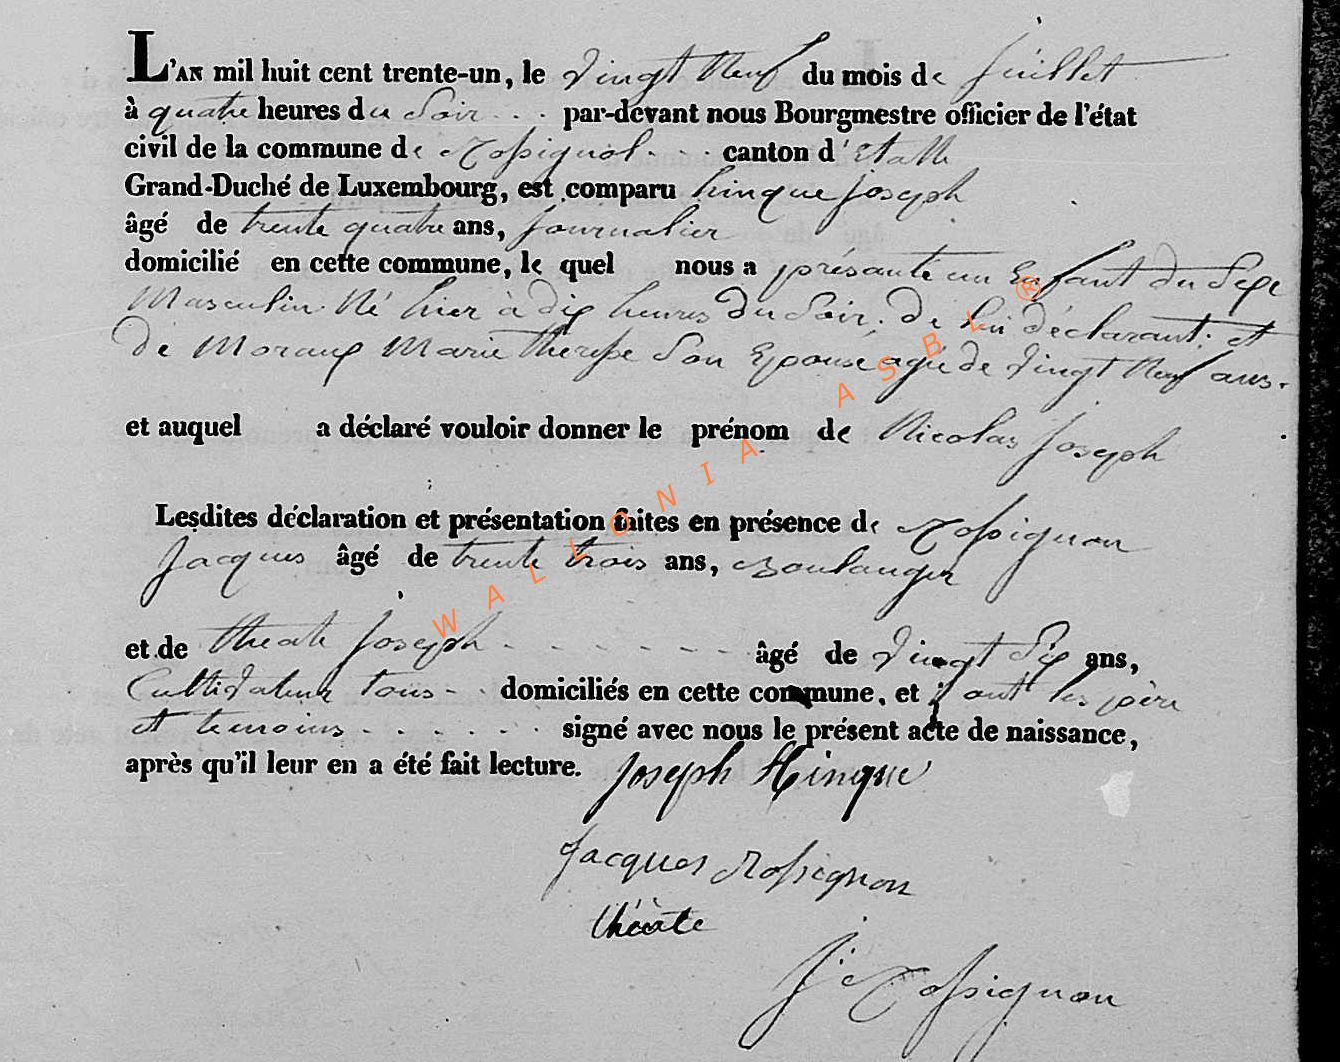 L'AN mil huit cent trente-un, le vingt Neuf du mois de Juillet
à quatre heures du Soir . . . par-devant nous Bourgmestre officier de l'état
civil de la commune de Rossignol . . . canton d'Etalle
Grand-Duché de Luxembourg, est comparu hinque joseph
âgé de trente quatre ans, journalier
domicilié en cette commune, le quel nous a présanté un Enfant du Sexe
Masculin Né hier à dix heures du Soir, de lui déclarant, et
de Moraux Marie therese Son Epouse agée de vingt Neuf ans.
et auquel a déclaré vouloir donner le prénom de Nicolas Joseph
Lesdites déclaration et présentation faites en présence de Rossignon
Jacques âgé de trente trois ans, Boulanger
et de théate Joseph . . . . . . . . âgé de vingt Six ans,
Cultivateur tous . . domiciliés en cette commune, et ont les père
et temoins . . . . . . signé avec nous le présent acte de naissance,
après qu'il leur en a été fait lecture. joseph Hinque
jacques Rossignon
théate
J. Rossignon
WALLONIA ASBL ®